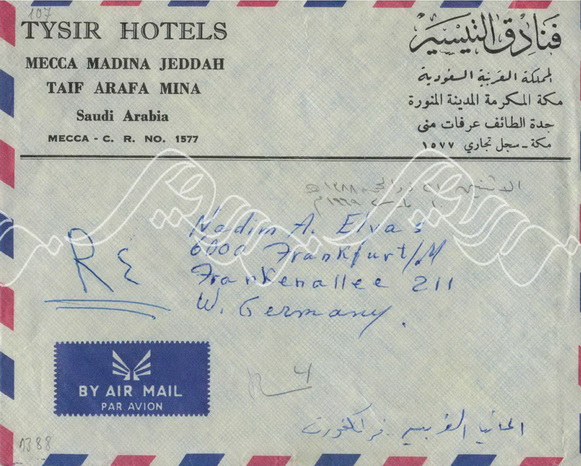 107
TYSIR HOTELS
MECCA MADINA JEDDAH
TAIF ARAFA MINA
Saudi Arabia
MECCA - C. R. NO. 1577
فنادق التيسير
المملكة العربية السعودية
مكة المكرمة المدينة المنورة
جدة الطائف عرفات منى
مكة - سجل تجاري ١٥٧٧
Nadim A. Elyas
6000 Frankfurt/M
Frankenallee 211
W. Germany.
R ٤
BY AIR MAIL
PAR AVION
المانيا الغربية - فرانكفورت
1388